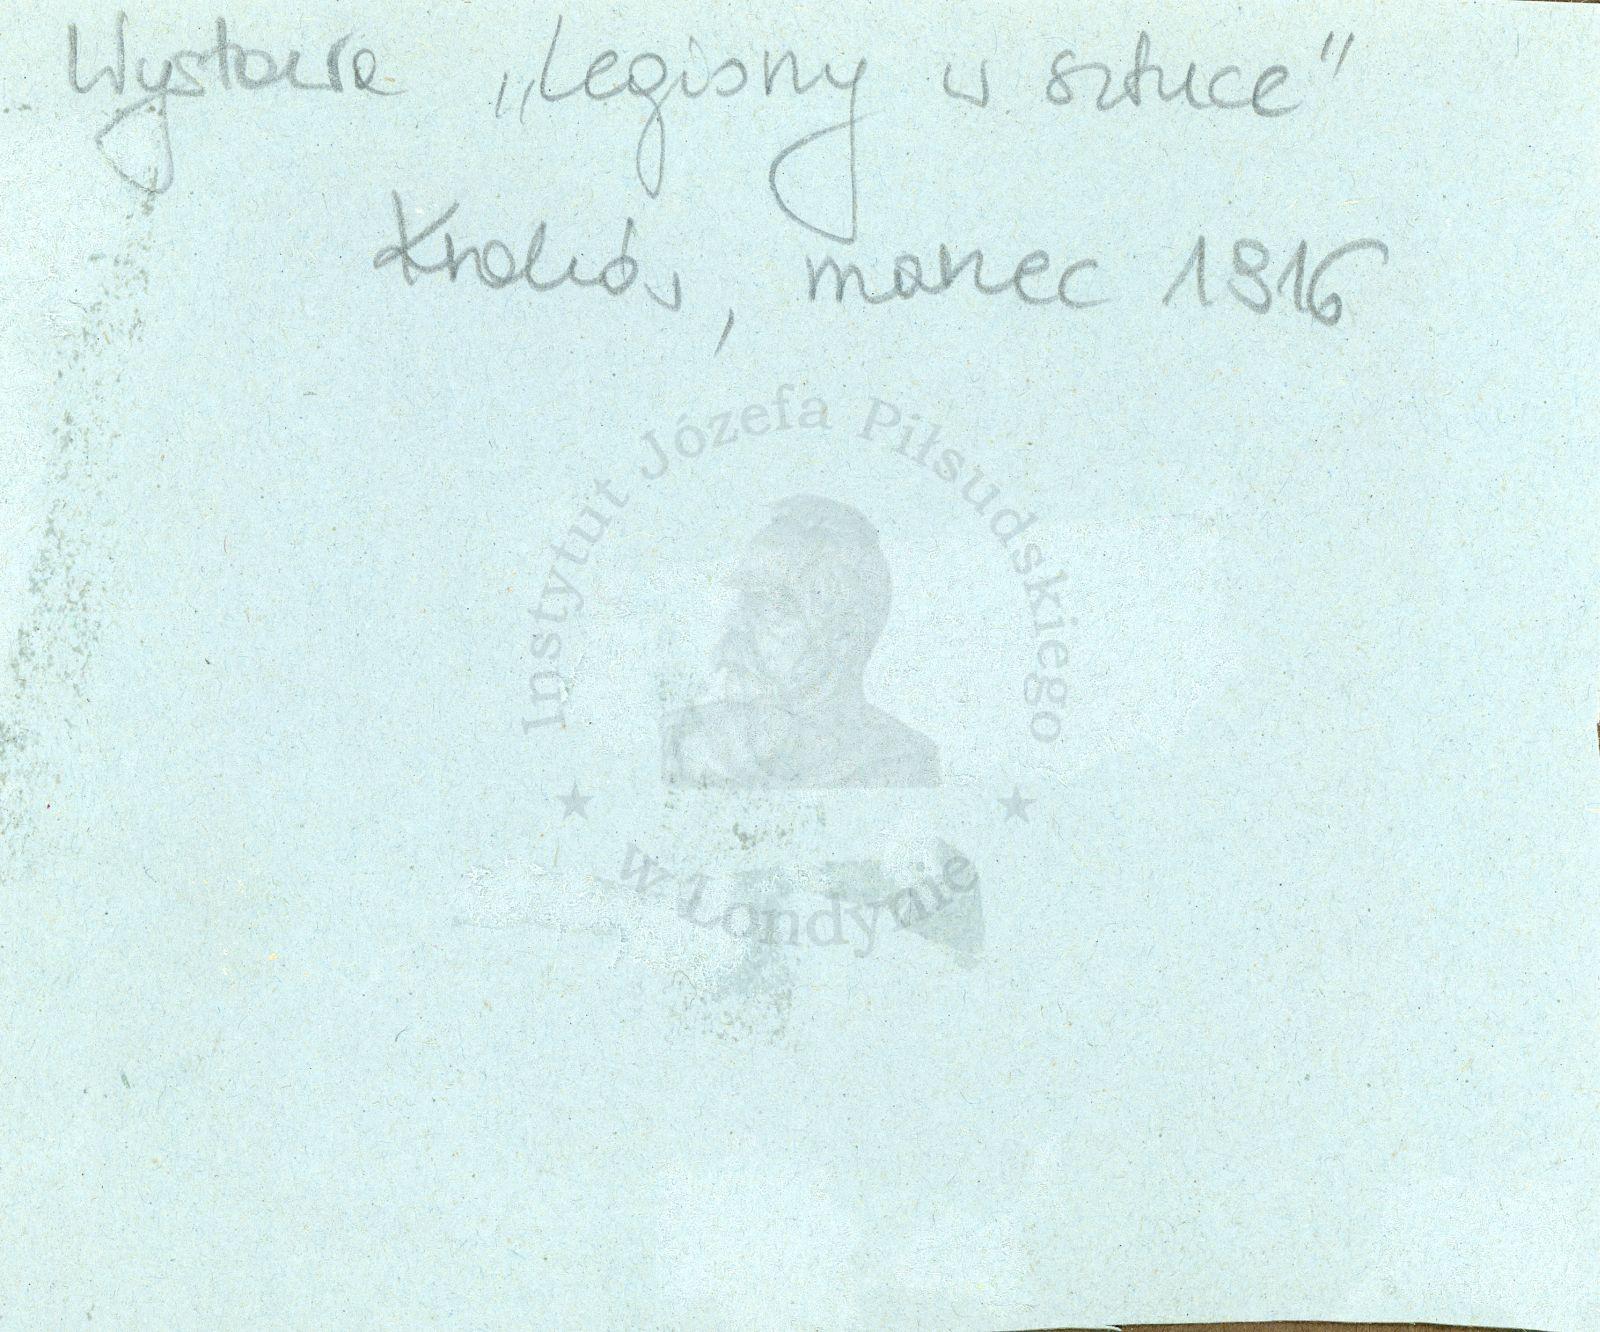 Wystawa „Legiony w sztuce”
Kraków, marzec 1916
Instytut Józefa Piłsudskiego
w Londynie